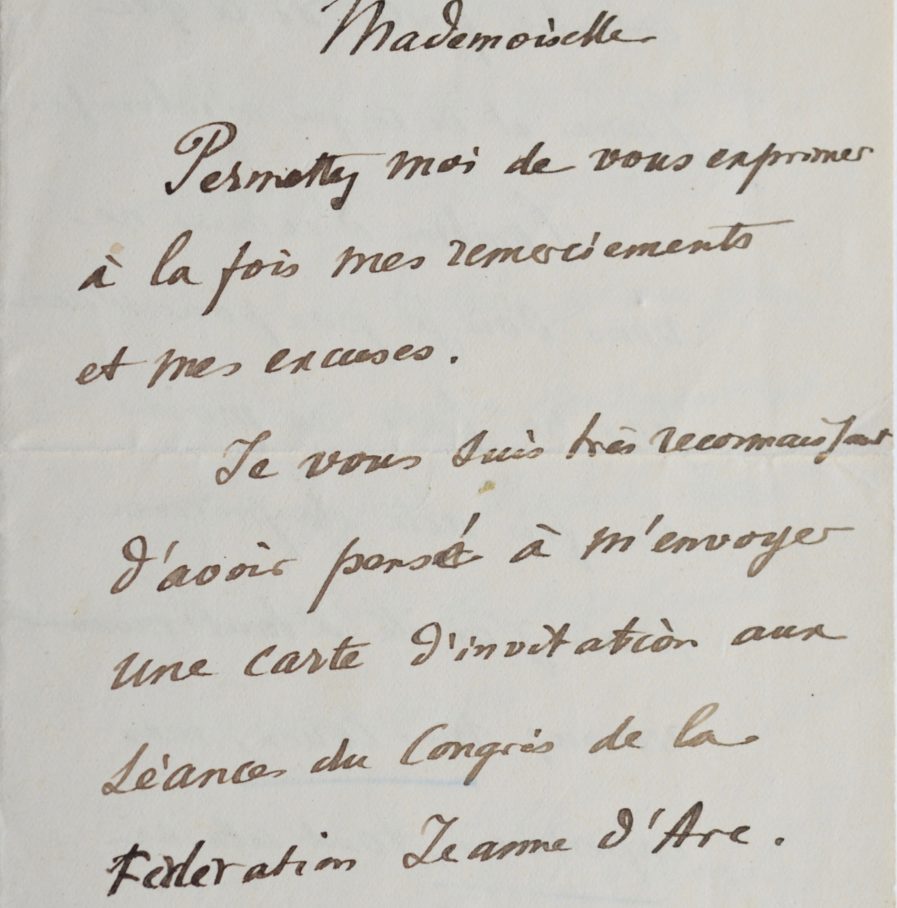 Mademoiselle
Permettez moi de vous exprimer
à la fois mes remerciements
et mes excuses.
Je vous suis très reconnaissant
d'avoir pensé à m'envoyer
une carte d'invitation aux
séances du Congrès de la
Féderation Jeanne d'Arc.